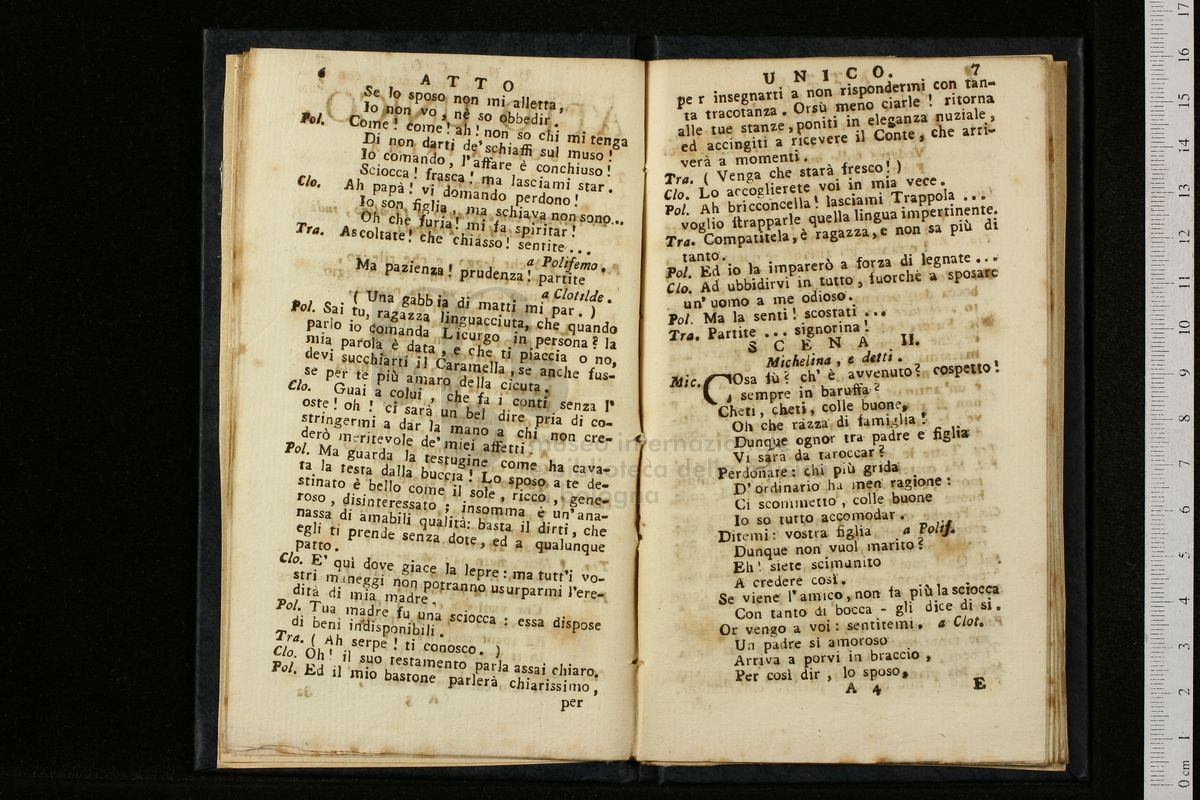 6 ATTO
Se lo sposo non mi alletta,
Io non vo, nè so obbedir.
Pol. Come! come! ah! non so chi mi tenga
Di non darti de'schiaffi sul muso!
Io comando, l'affare è conchiuso!
Sciocca! frasca! ma lasciami star.
Clo. Ah papà! vi domando perdono!
Io son figlia, ma schiava non sono...
Oh che furia! mi fa spiritar!
Tra. Ascoltate! che chiasso! sentite...
a Polifemo.
Ma pazienza! prudenza! partite
a Clotilde.
( Una gabbia di matti mi par. )
Pol. Sai tu, ragazza linguacciuta, che quando
parlo io comanda Licurgo in persona? la
mia parola è data, e che ti piaccia o no,
devi succhiarti il Caramella, se anche fus-
se per te più amaro della cicuta.
Clo. Guai a colui, che fa i conti senza l'
oste! oh! ci sarà un bel dire pria di co-
stringermi a dar la mano a chi non cre-
derò meritevole de' miei affetti.
Pol. Ma guarda la testugine come ha cava-
ta la testa dalla buccia! Lo sposo a te de-
stinato è bello come il sole, ricco, gene-
roso, disinteressato; insomma è un'ana-
nassa di amabili qualità: basta il dirti, che
egli ti prende senza dote, ed a qualunque
patto.
Clo. E' quì dove giace la lepre: ma tutt'i vo-
stri maneggi non potranno usurparmi l'ere-
dità di mia madre.
Pol. Tua madre fu una sciocca: essa dispose
di beni indisponibili.
Tra. ( Ah serpe! ti conosco. )
Clo. Oh! il suo testamento parla assai chiaro.
Pol. Ed il mio bastone parlerà chiarissimo,
per
UNICO. 7
pe r insegnarti a non rispondermi con tan-
ta tracotanza. Orsù meno ciarle! ritorna
alle tue stanze, poniti in eleganza nuziale,
ed accingiti a ricevere il Conte, che arri-
verà a momenti.
Tra. ( Venga che starà fresco! )
Clo. Lo accoglierete voi in mia vece.
Pol. Ah bricconcella! lasciami Trappola ...
voglio strapparle quella lingua impertinente.
Tra. Compatitela, è ragazza, e non sa più di
tanto.
Pol. Ed io la imparerò a forza di legnate ...
Clo. Ad ubbidirvi in tutto, fuorchè a sposare
un' uomo a me odioso.
Pol. Ma la senti! scostati ...
Tra. Partite ... signorina!
SCENA II.
Michelina, e detti.
Mic. COsa fù? ch' è avvenuto? cospetto!
sempre in baruffa?
Cheti, cheti, colle buone,
Oh che razza di famiglia!
Dunque ognor tra padre e figlia
Vi sarà da taroccar?
Perdonate: chi più grida
D' ordinario ha men ragione:
Ci scommetto, colle buone
Io so tutto accomodar.
Ditemi: vostra figlia a Polif.
Dunque non vuol marito?
Eh! siete scimunito
A credere così.
Se viene l'amico, non fa più la sciocca
Con tanto di bocca - gli dice di si.
Or vengo a voi: sentitemi. a Clot.
Un padre si amoroso
Arriva a porvi in braccio,
Per così dir, lo sposo,
A 4 E
museo internazionale
biblioteca della